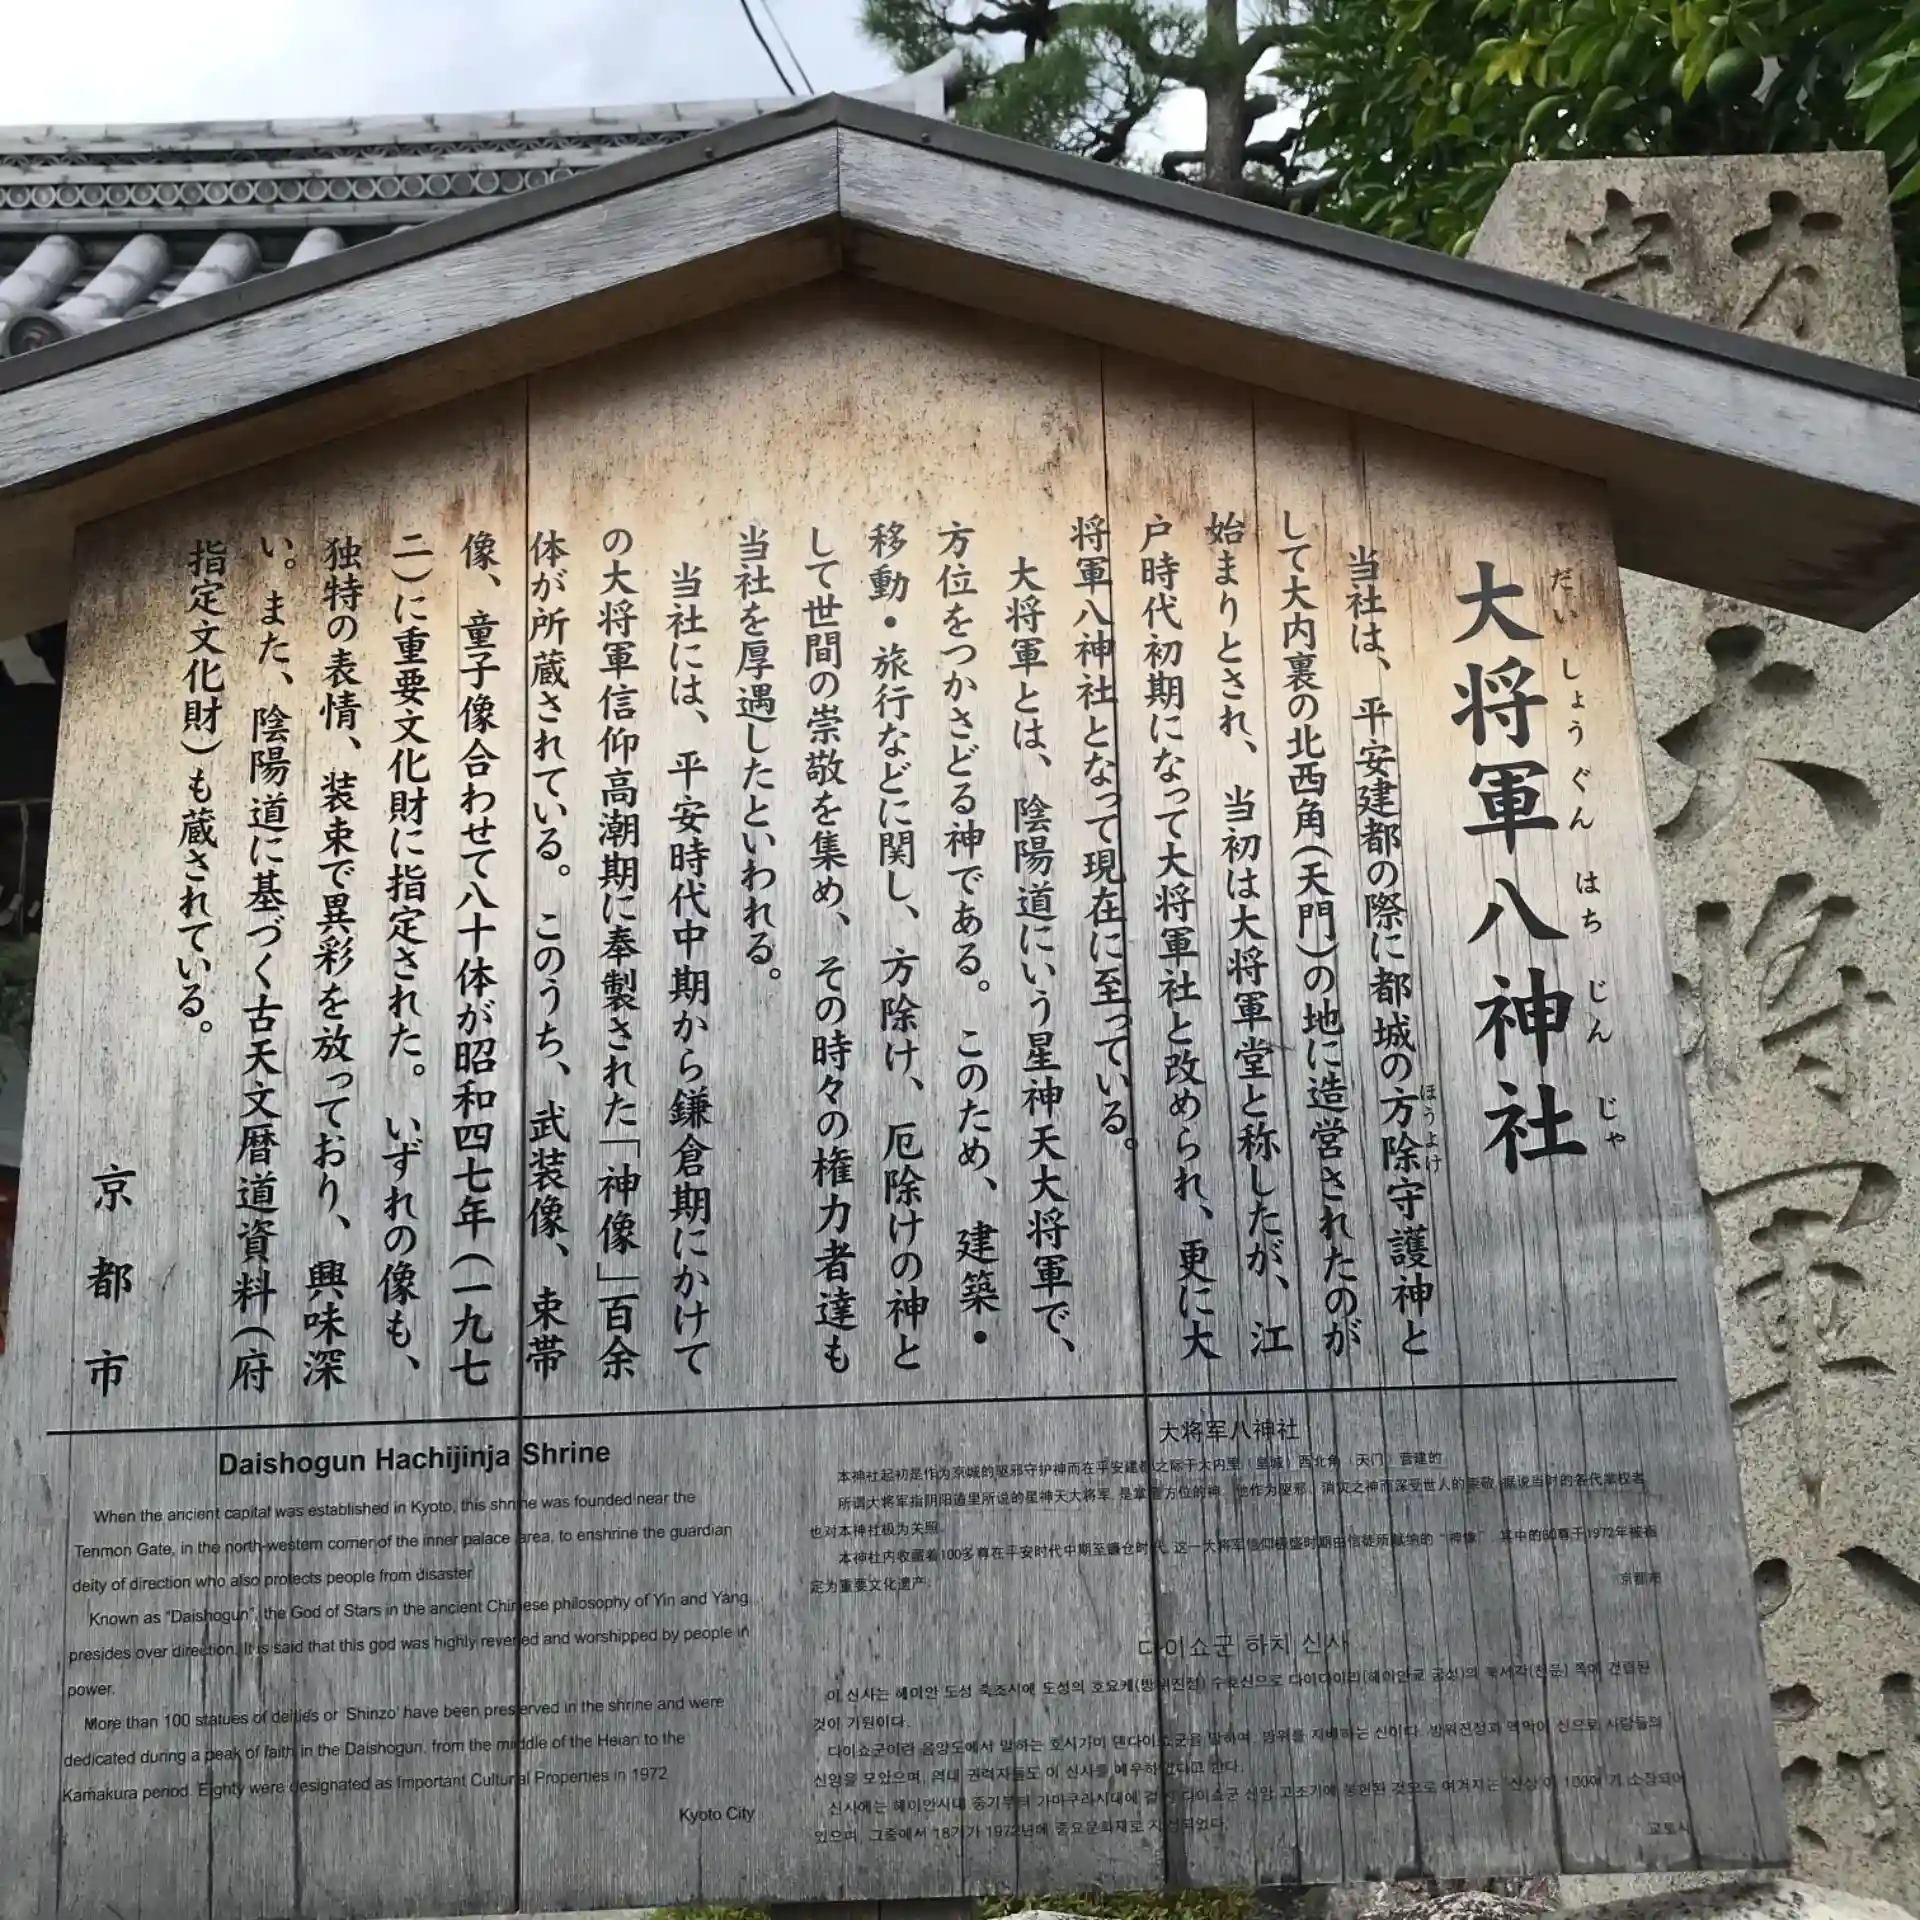 大将軍八神社
だいしょうぐんはちじんじゃ
当社は、平安建都の際に都城の方除守護神と
ほうよけ
して大内裏の北西角(天門)の地に造営されたのが
始まりとされ、当初は大将軍堂と称したが、江
戸時代初期になって大将軍社と改められ、更に大
将軍八神社となって現在に至っている。
大将軍とは、陰陽道にいう星神天大将軍で、
方位をつかさどる神である。このため、建築・
移動・旅行などに関し、方除け、厄除けの神と
して世間の崇敬を集め、その時々の権力者達も
当社を厚遇したといわれる。
当社には、平安時代中期から鎌倉期にかけて
の大将軍信仰高潮期に奉製された「神像」百余
体が所蔵されている。このうち、武装像、束帯
像、童子像合わせて八十体が昭和四七年(一九七
二)に重要文化財に指定された。いずれの像も、
独特の表情、装束で異彩を放っており、興味深
い。また、陰陽道に基づく古天文暦道資料(府
指定文化財)も蔵されている。
京都市
Daishogun Hachijinja Shrine
When the ancient capital was established in Kyoto, this shrine was founded near the
Tenmon Gate, in the north-western corner of the inner palace area, to enshrine the guardian
deity of direction who also protects people from disaster
Known as "Daishogun", the God of Stars in the ancient Chinese philosophy of Yin and Yang
presides over direction. It is said that this god was highly revered and worshipped by people in
power.
More than 100 statues of deities or 'Shinzo' have been preserved in the shrine and were
dedicated during a peak of faith in the Daishogun, from the middle of the Heian to the
Kamakura period. Eighty were designated as Important Cultural Properties in 1972
Kyoto City
大将军八神社
本神社起初是作为京城的驱邪守护神而在平安建都之际于大内里(皇城)西北角(天门)营建的
所谓大将军指阴阳道里所说的星神天大将军,是掌管方位的神。他作为驱邪、消灾之神而深受世人的崇敬,据说当时的各代掌权者
也对本神社极为关照。
本神社内收藏着100多尊在平安时代中期至镰仓时代,这一大将军信仰极盛时期由信徒所献纳的"神像",其中的80尊于1972年被指
定为重要文化遗产。
京都市
다이쇼군 하치 신사
이 신사는 헤이안 도성 축조시에 도성의 호요케(방위진정) 수호신으로 다이다이리(헤이안쿄 궁성)의 북서각(천문) 쪽에 건립된
것이 기원이다.
다이쇼군이란 음양도에서 말하는 호시가미 텐다이쇼군을 말하며, 방위를 지배하는 신이다. 방위진정과 액막이 신으로 사람들의
신앙을 모았으며, 역대 권력자들도 이 신사를 예우하였다고 한다.
신사에는 헤이안시대 중기부터 가마쿠라시대에 걸친 다이쇼군 신앙 고조기에 봉헌된 것으로 여겨지는 '신상'이 100여 기 소장되어
있으며, 그중에서 18기가 1972년에 중요문화재로 지정되었다.
교토시
方
大将軍